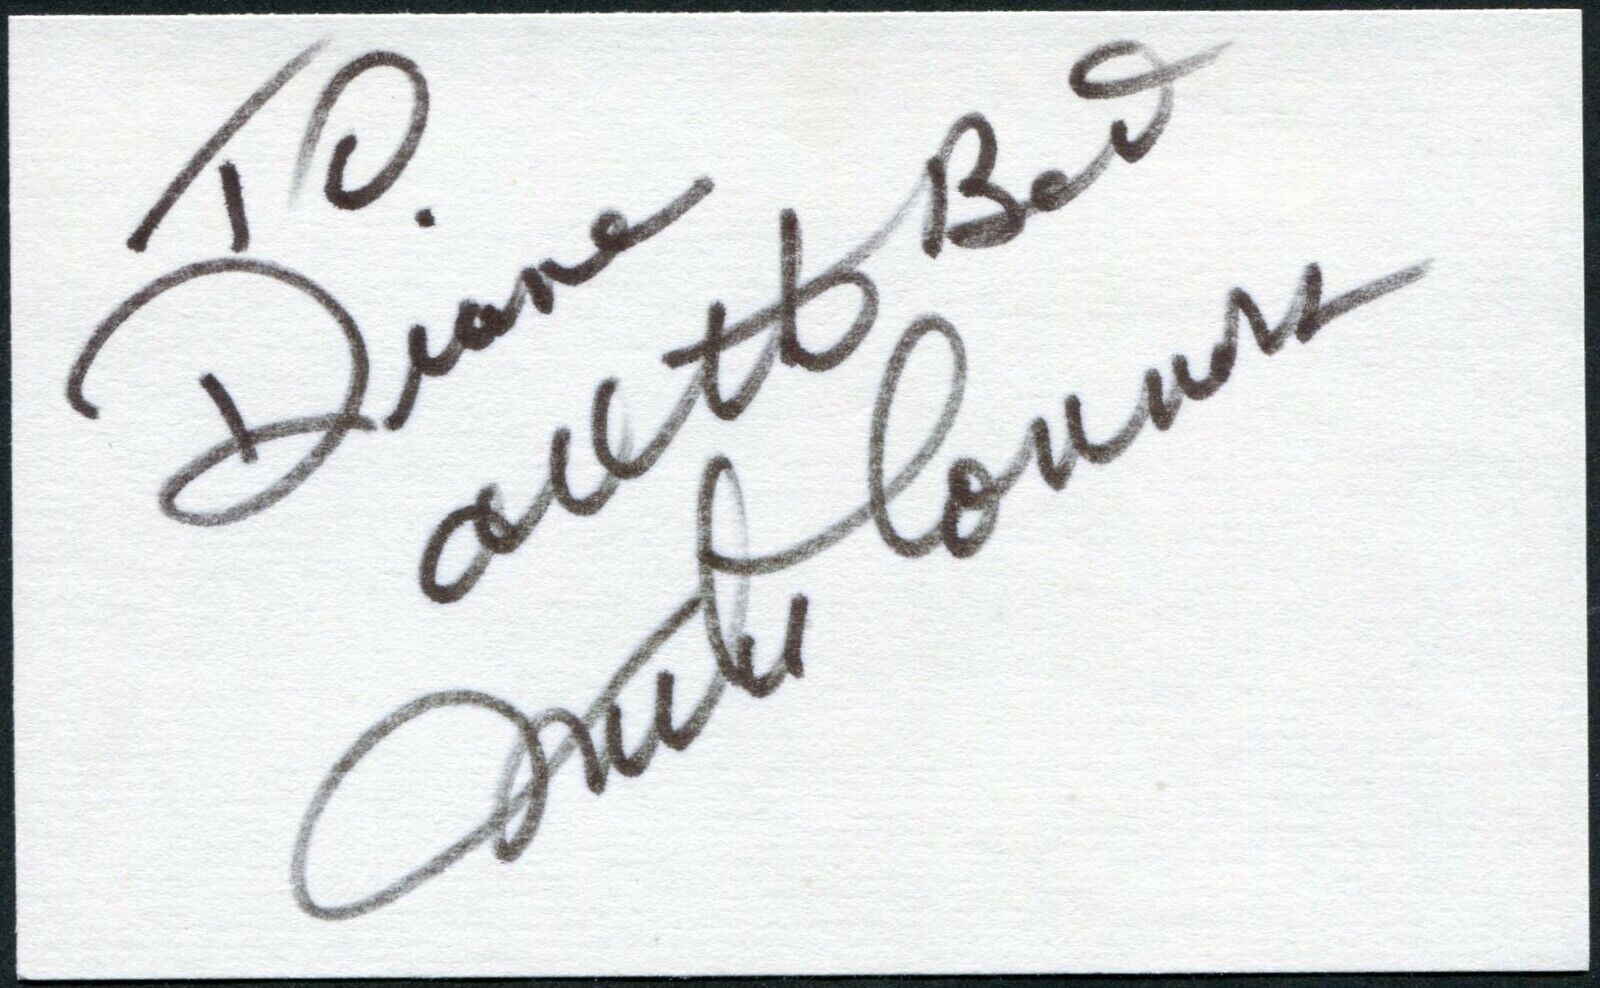 To.
Diane
all the Best
Mike Connors